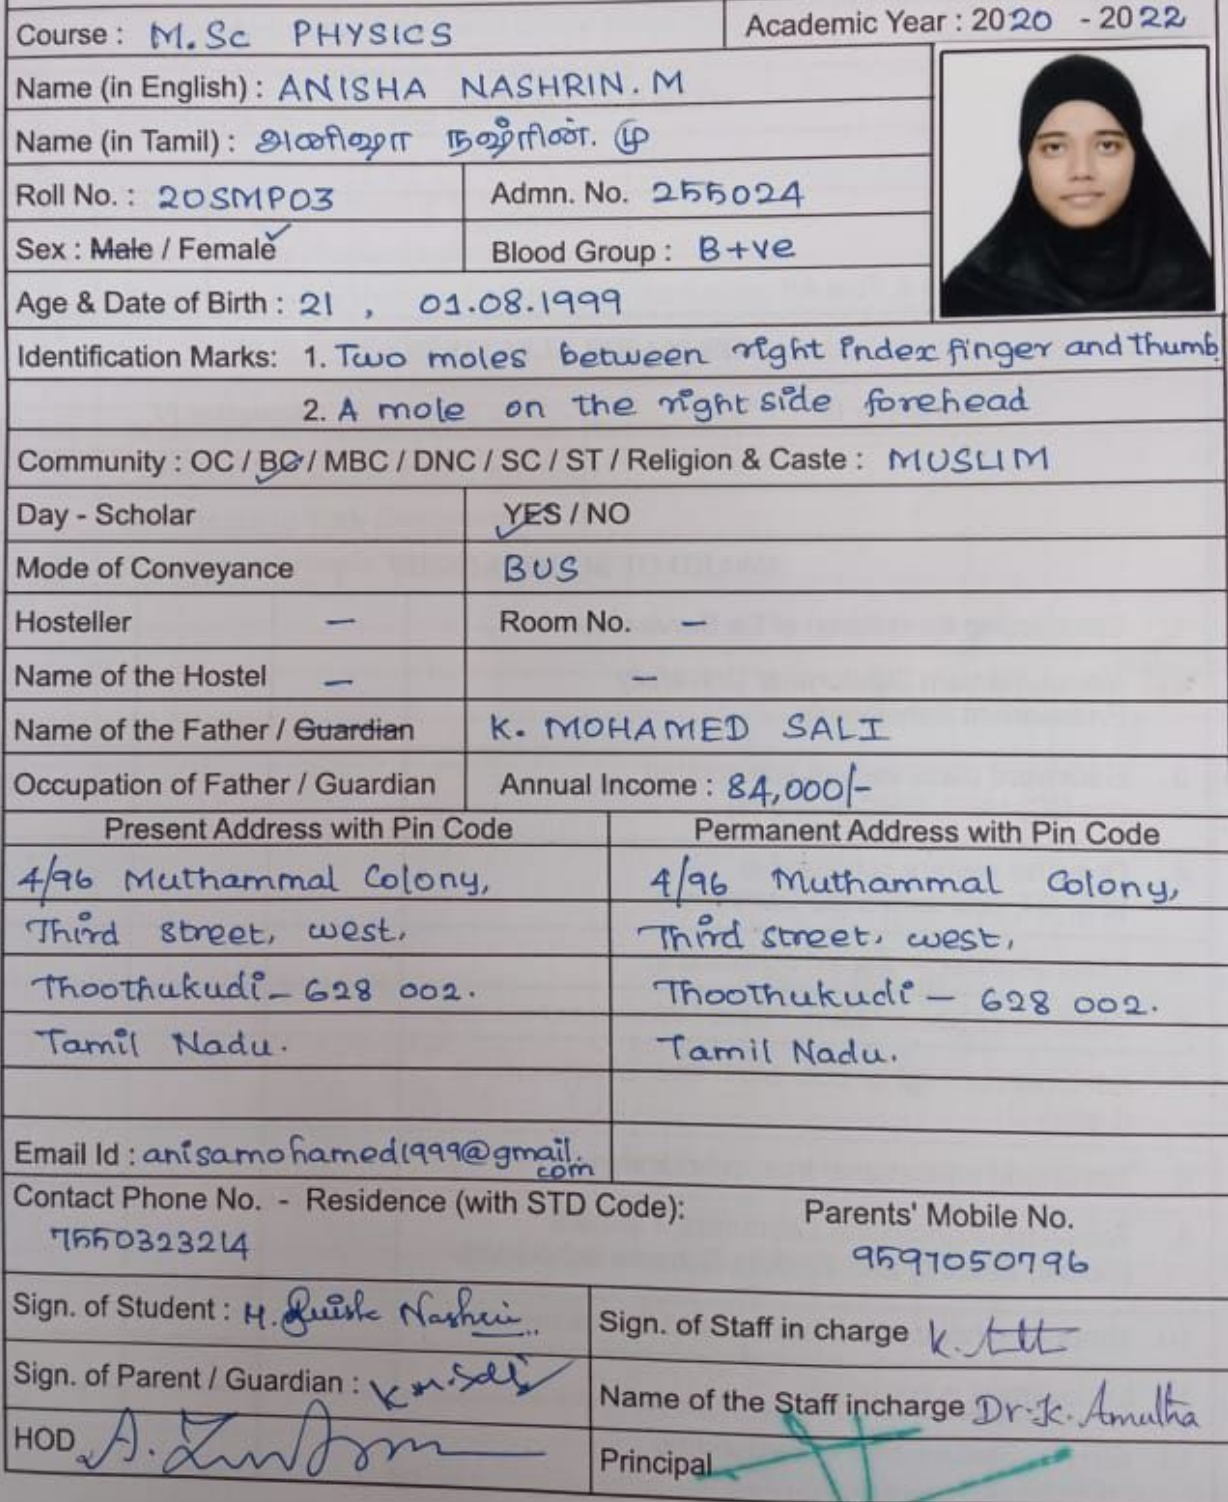 Course : M.Sc PHYSICS
Academic Year : 2020 - 2022
Name (in English) : ANISHA NASHRIN. M
Name (in Tamil) : அனிஷா நஷ்ரின். மு
Roll No. : 20SMP03
Admn. No. 255024
Sex : Male / Female
Blood Group : B+ve
Age & Date of Birth : 21 , 01.08.1999
Identification Marks: 1. Two moles between right index finger and thumb
2. A mole on the right side forehead
Community : OC / BC / MBC / DNC / SC / ST / Religion & Caste : MUSLIM
Day - Scholar YES / NO
Mode of Conveyance BUS
Hosteller — Room No. —
Name of the Hostel — —
Name of the Father / Guardian K. MOHAMED SALI
Occupation of Father / Guardian Annual Income : 84,000/-
Present Address with Pin Code
4/96 Muthammal Colony,
Third street, west,
Thoothukudi - 628 002.
Tamil Nadu.
Permanent Address with Pin Code
4/96 Muthammal Colony,
Third street, west,
Thoothukudi - 628 002.
Tamil Nadu.
Email Id : anisamohamed1999@gmail.
com
Contact Phone No. - Residence (with STD Code):
7550323214
Parents' Mobile No.
9597050796
Sign. of Student : M. Nashrin
Sign. of Staff in charge K.
Sign. of Parent / Guardian : K.M.Sali
Name of the Staff incharge Dr. K. Amutha
HOD A.
Principal